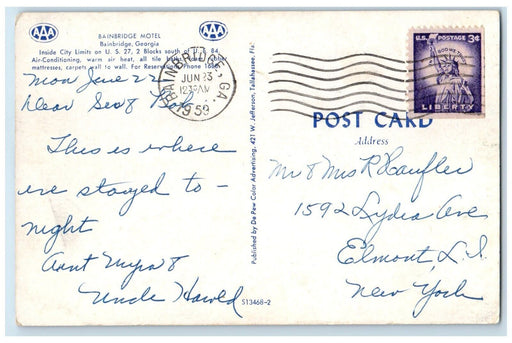 AAA
AAA
BAINBRIDGE MOTEL
Bainbridge, Georgia
Inside City Limits on U. S. 27, 2 Blocks south of U. S. 84.
Air-Conditioning, warm air heat, all tile
mattresses, carpets wall to wall. For Phone
BAINBRIDGE, GA.
JUN 23
12 AM
1959
U.S. POSTAGE 3¢
IN GOD WE TRUST
LIBERTY
Mon June 22
Dear
This is where
we stayed to -
night
Aunt Myra &
Uncle Harold
Published by De Pew Color Advertising, 421 W. Jefferson, Tallahassee, Fla.
S13468-2
POST CARD
Address
Mr & Mrs R Haufler
1592 Lydia Ave
Elmont, L. I.
New York